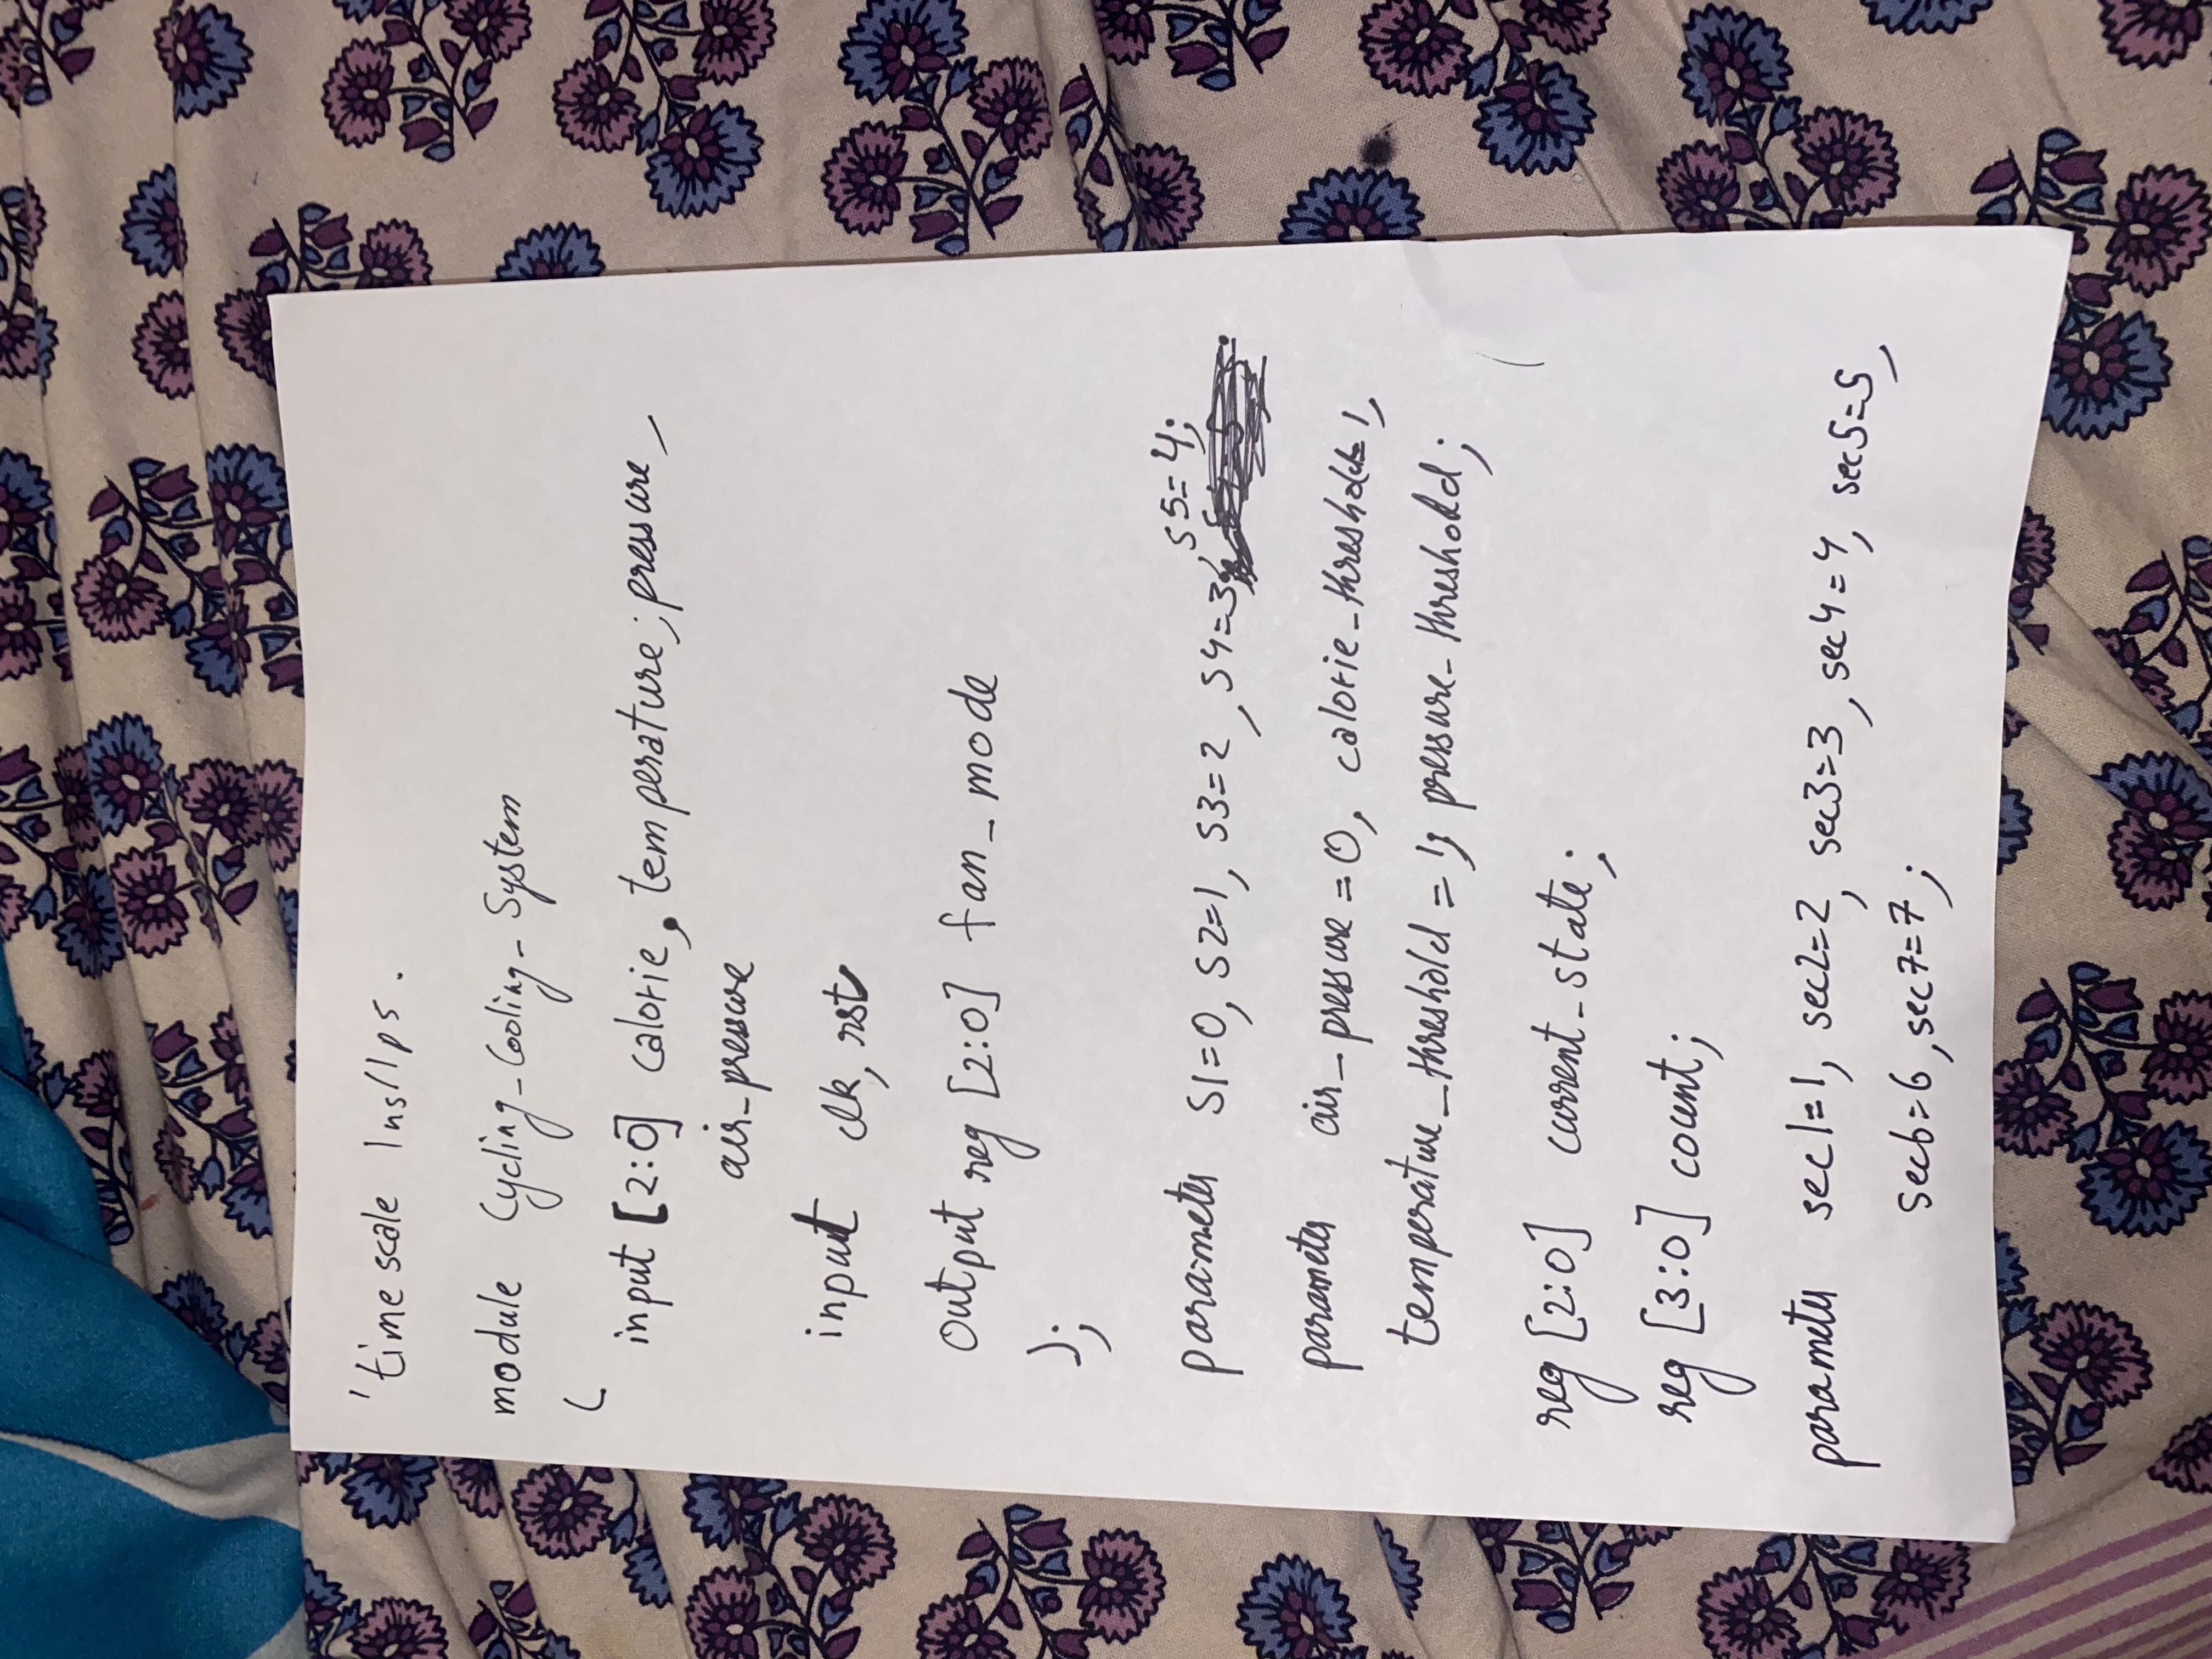 'time scale 1ns/1ps.
module Cycling_Cooling_System
(
input [2:0] calorie, temperature; pressure,
air_pressure
input clk, rst
output reg [2:0] fan_mode
);
parameter S1=0, S2=1, S3=2, S4=3, S5=4;
parameter air_pressure=0, calorie_threshold=1,
temperature_threshold=1, pressure_threshold;
reg [2:0] current_state;
reg [3:0] count;
parameter sec1=1, sec2=2, sec3=3, sec4=4, sec5=5,
sec6=6, sec7=7;